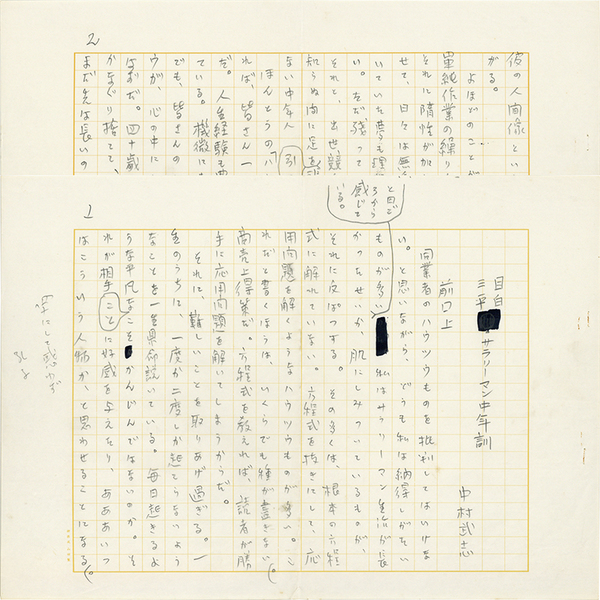 1
目白
三平サラリーマン中年訓
中村武志
前口上
同業者のハウツウものを批判してはいけな
い。と思いながら、どうも私は納得しがたい
ものが多い
と日ご
ろから
感じて
いる。
私はサラリーマン生活が長
かったせいか、肌にしみついているものが、
それに反ぱつする。その多くは、根本の方程
式に解れていない。方程式を抜きにして、応
用問題を解くようなハウツウものが多い。こ
れだと書くほうは、いくらでも種が尽きない。
商売上得策だ。方程式を教えれば、読者が勝
手に応用問題を解いてしまうからだ。
それに、難しいことを取りあげ過ぎる。一
生のうちに、一度か二度しか起こらないよう
なことを一生県命説いている。毎日起きるよ
うな平凡なこそかんじんではないのか。そ
こと
れが相手に好感を与えたり、ああいつ
はこういう人物か、と思わせることになる。
2
彼の人間像とい
がる。
よほどのことが
単純作業の繰り
それに惰性が加
せて、日々は無
いていた夢も理
い。ただ残って
それと、出世競
知らぬ間に足を
引
ない中年人
ほんとうのハ
れば、皆さん一
だ。人生経験も
ている。機微に
でも、皆さんの
ウが、心の中に
はずだ。四十歳
かなぐり捨てて、
まだ先は長いの